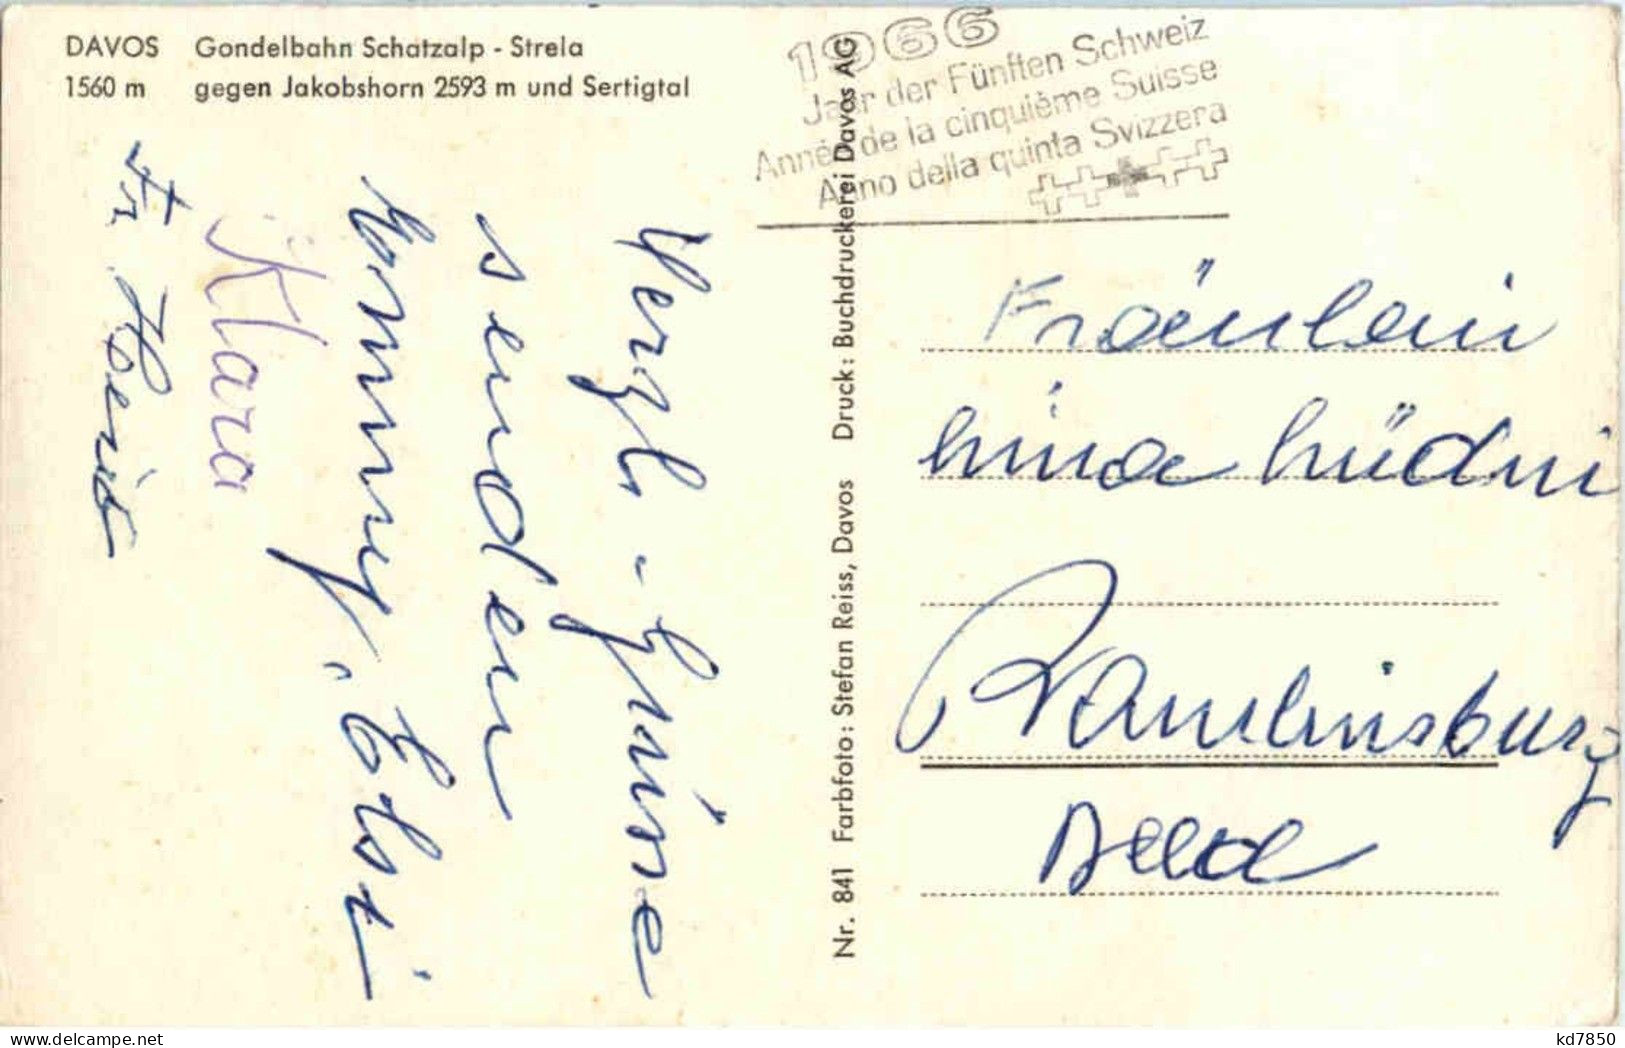 DAVOS Gondelbahn Schatzalp - Strela
1560 m gegen Jakobshorn 2593 m und Sertigtal
1966
Jahr der Fünften Schweiz
Année de la cinquième Suisse
Anno della quinta Svizzera
Herzl. Grüsse
senden
Elsi
Klara
Nr. 841 Farbfoto: Stefan Reiss, Davos Druck: Buchdruckerei Davos AG
Fräulein
Lina Lüdin
Ramlinsburg
kd7850